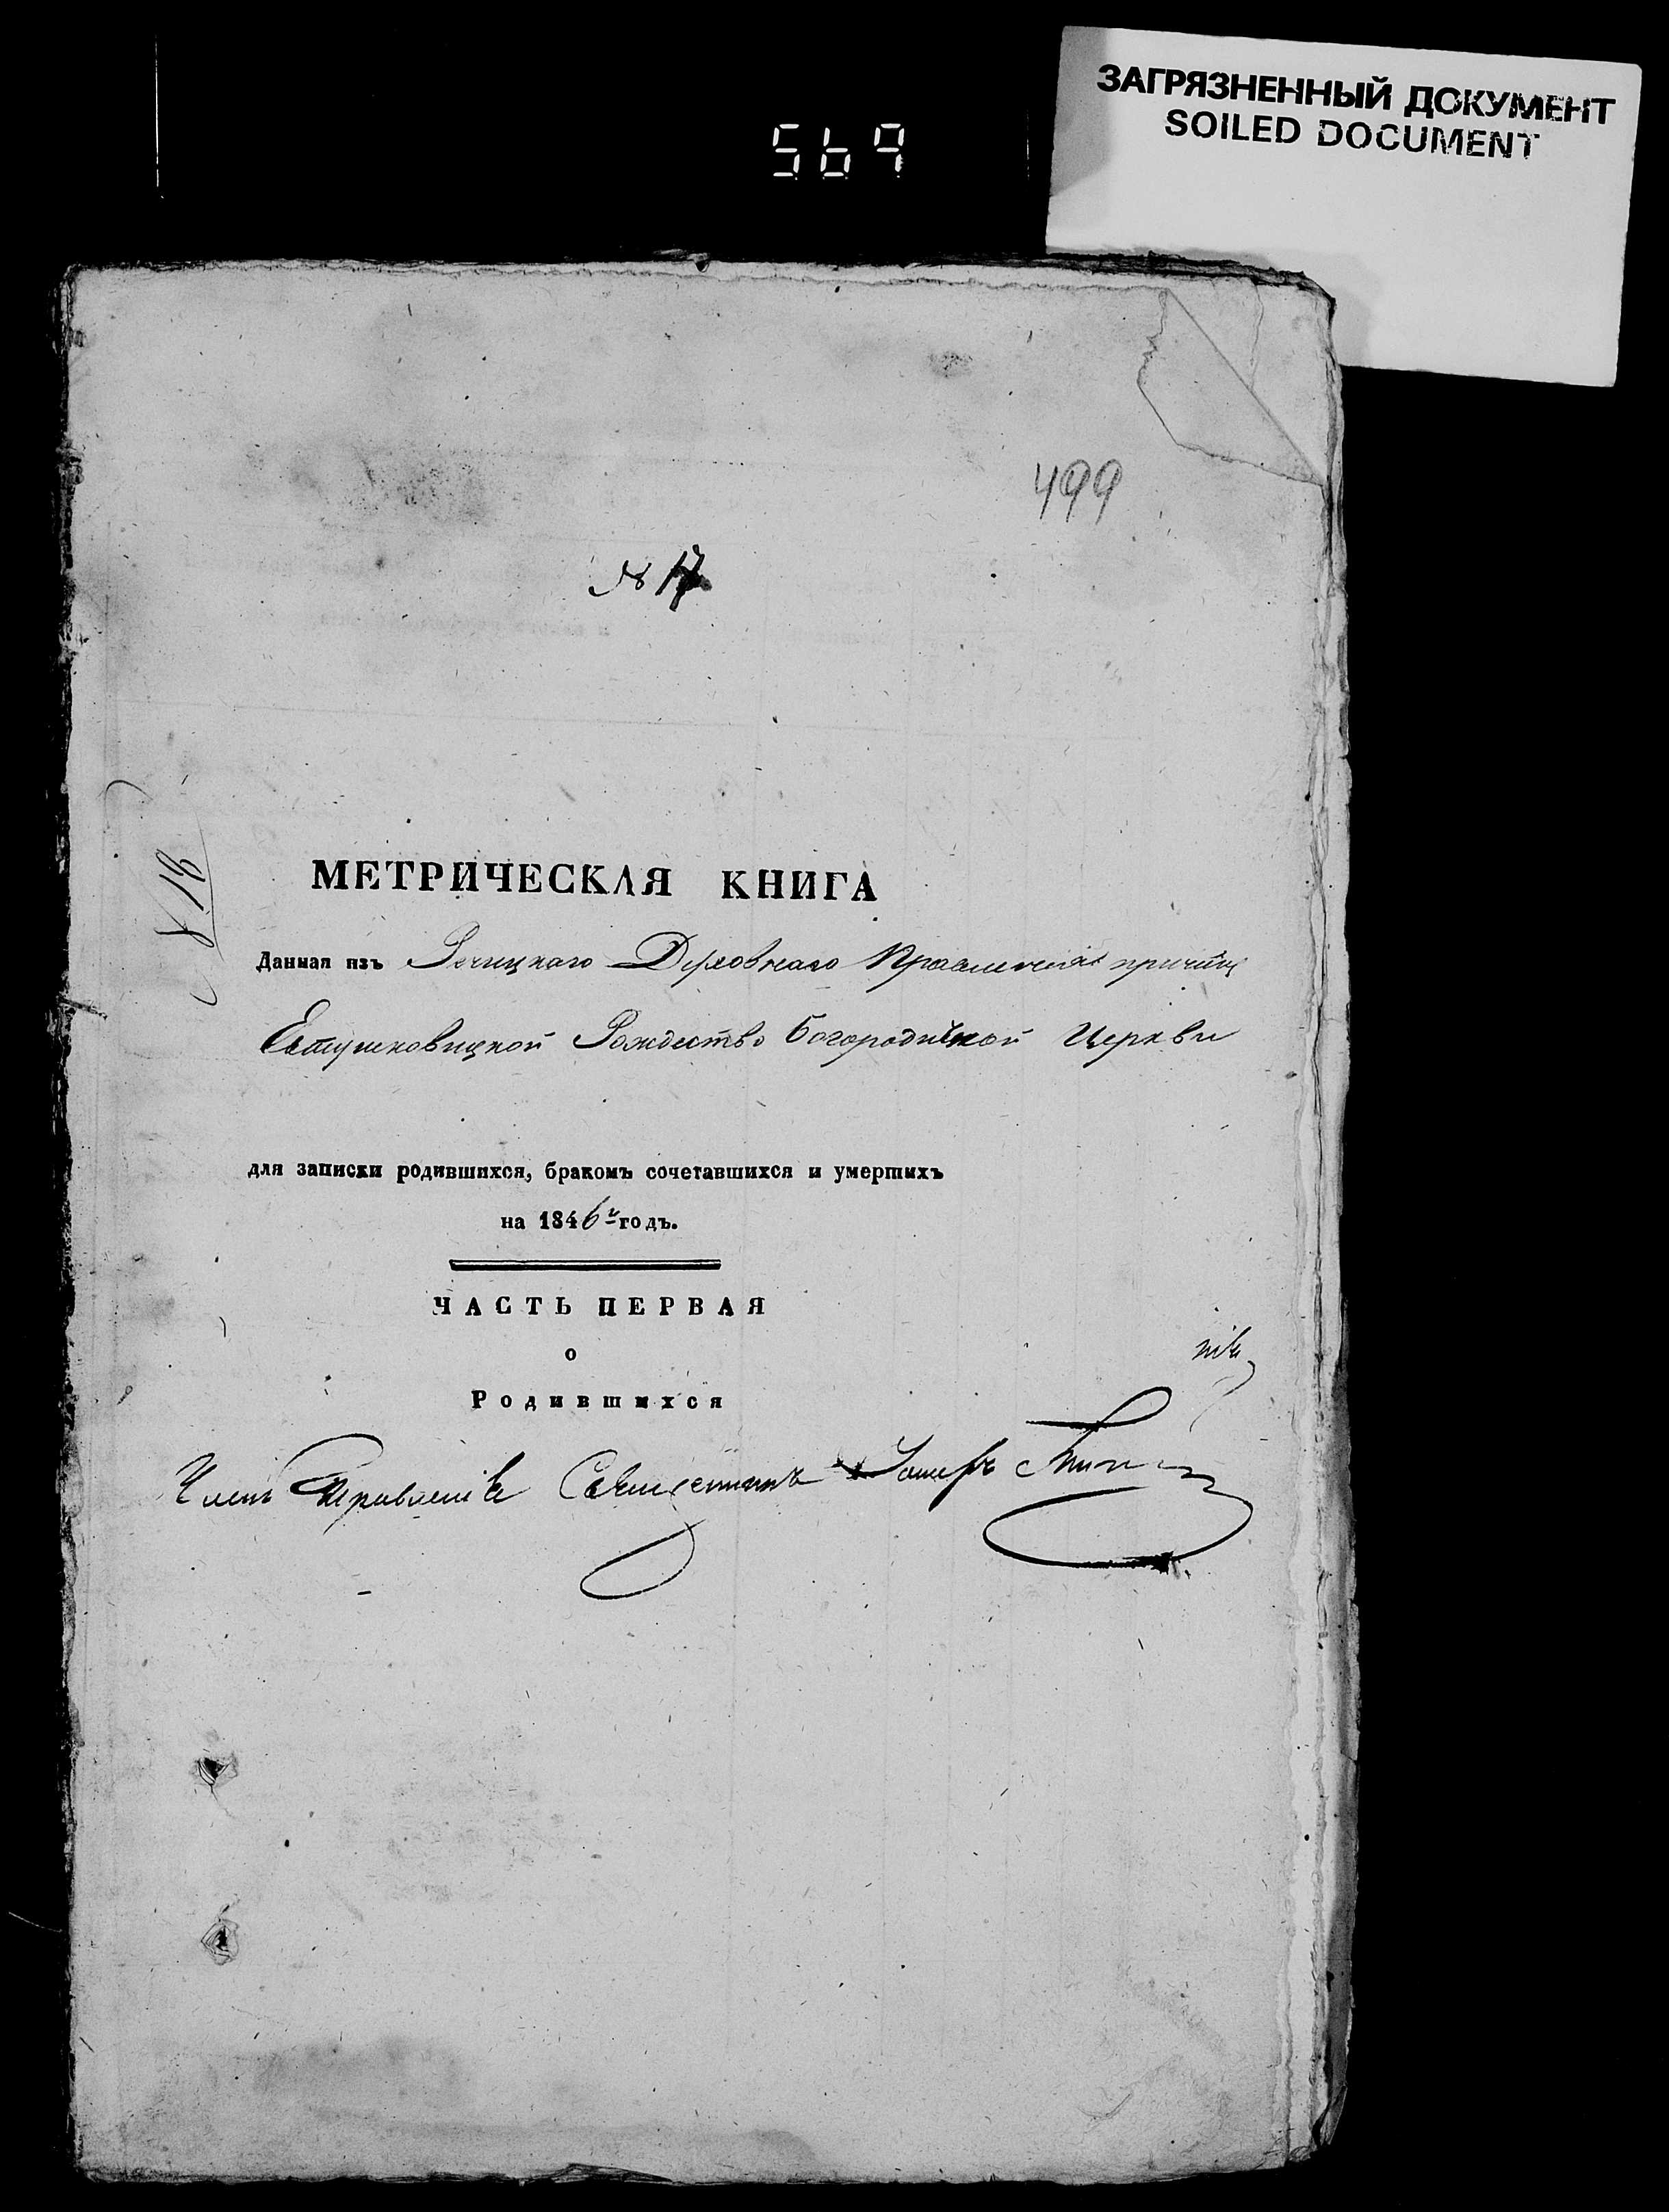 ЗАГРЯЗНЕННЫЙ ДОКУМЕНТ
SOILED DOCUMENT
569
499
№ 17
МЕТРИЧЕСКАЯ КНИГА
Данная изъ Речицкаго Духовнаго Правленія причту
Рождество Богородичной Церкви
для записки родившихся, бракомъ сочетавшихся и умершихъ
на 1846й годъ.
ЧАСТЬ ПЕРВАЯ
о
Родившихся
Членъ Правленія Священникъ